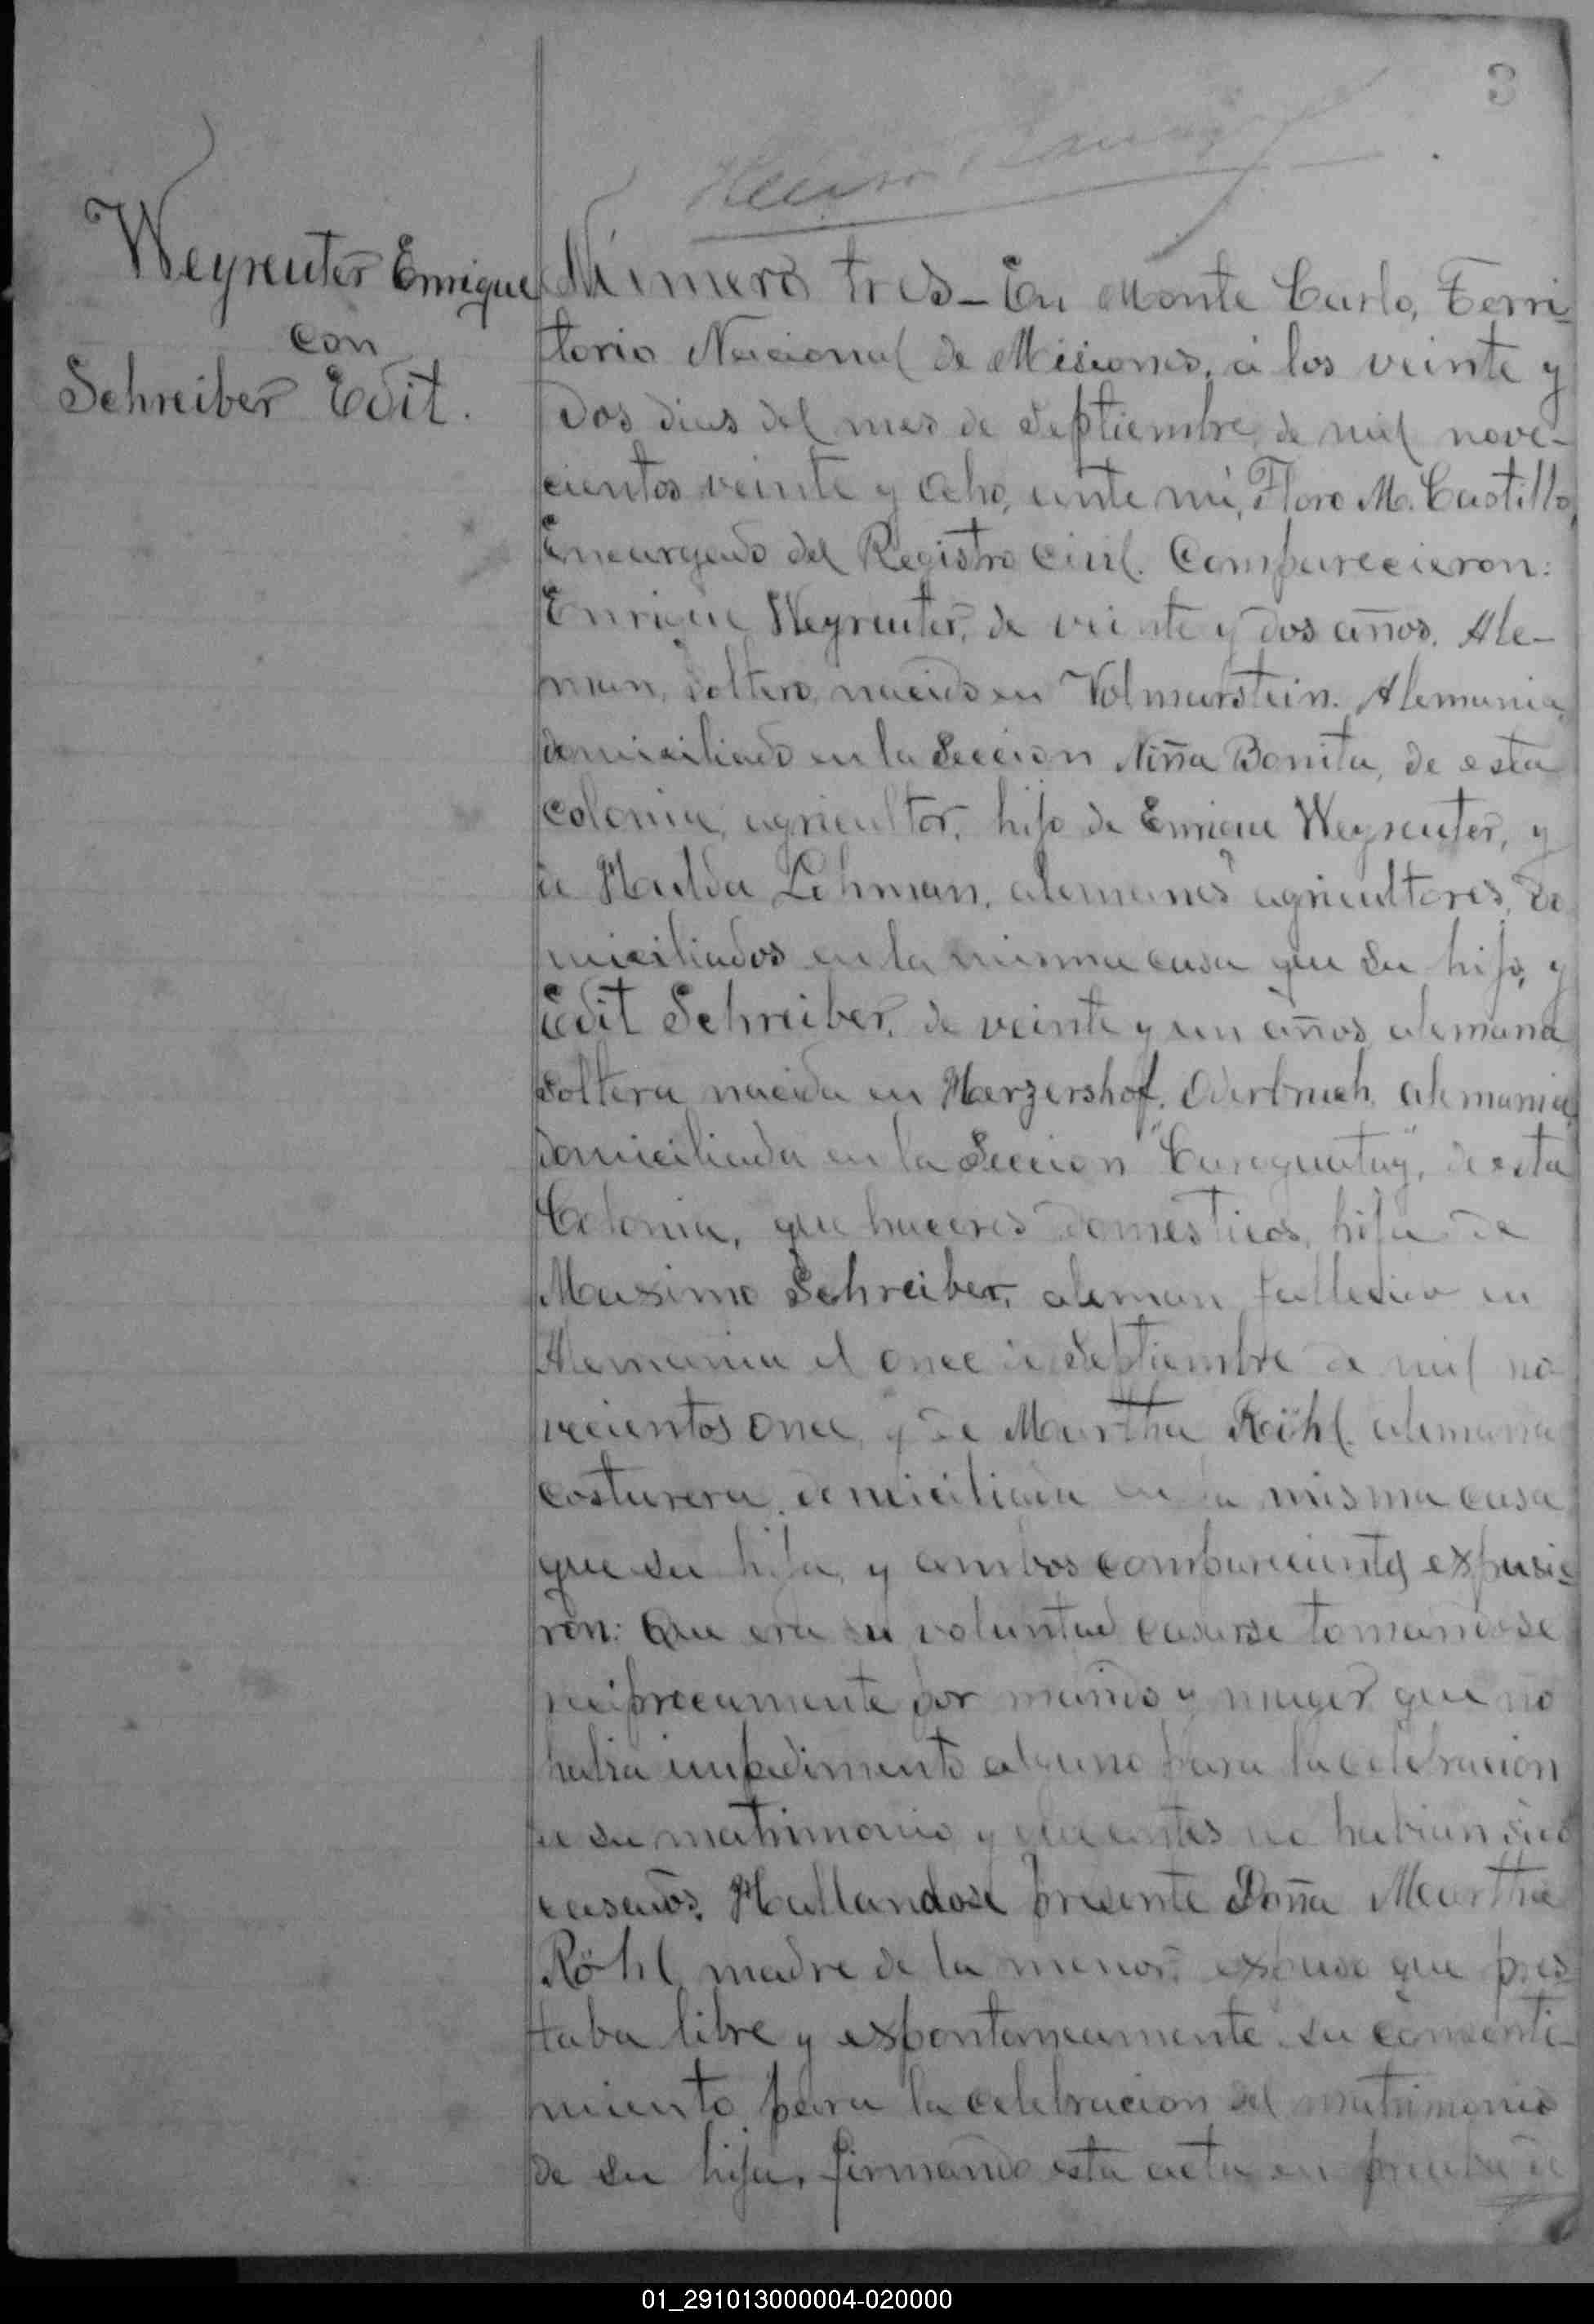 3
Weyreuter Enrique
con
Schreiber Edit.
Número tres - En Monte Carlo, Terri-
torio Nacional de Misiones, á los veinte y
dos dias del mes de Septiembre, de mil nove-
cientos veinte y ocho, ante mi, Floro M. Castillo,
Encargado del Registro Civil. Comparecieron:
Enrique Weyreuter, de veinte y dos años, Ale-
man, soltero, nacido en Volmarstein. Alemania,
domiciliado en la Seccion Niña Bonita, de esta
Colonia, agricultor, hijo de Enrique Weyreuter, y
de Hulda Lohman, alemanes agricultores, do
miciliados en la misma casa que su hijo, y
Edit Schreiber, de veinte y un años, alemana
soltera nacida en Herzershof, Oderbruch, alemania,
domiciliada en la Seccion "Caraguatay", de esta
Colonia, que haceres domesticos, hija de
Maximo Schreiber, aleman, fallecido en
Alemania el once de Septiembre de mil no
vecientos once, y de Martha Röhl, alemana
costurera, domiciliada en la misma casa
que su hija, y ambos comparecientes expusie-
ron: Que era su voluntad casarse tomandose
reciprocamente por marido y muger que no
habia impedimento alguno para la celebracion
de su matrimonio y que antes no habian sido
casados. Hallandose presente Doña Martha
Röhl, madre de la menor, expuso que pres
taba libre y espontaneamente su consenti-
miento para la celebracion del matrimonio
de su hija, firmando esta acta en prueba de
01_291013000004-020000